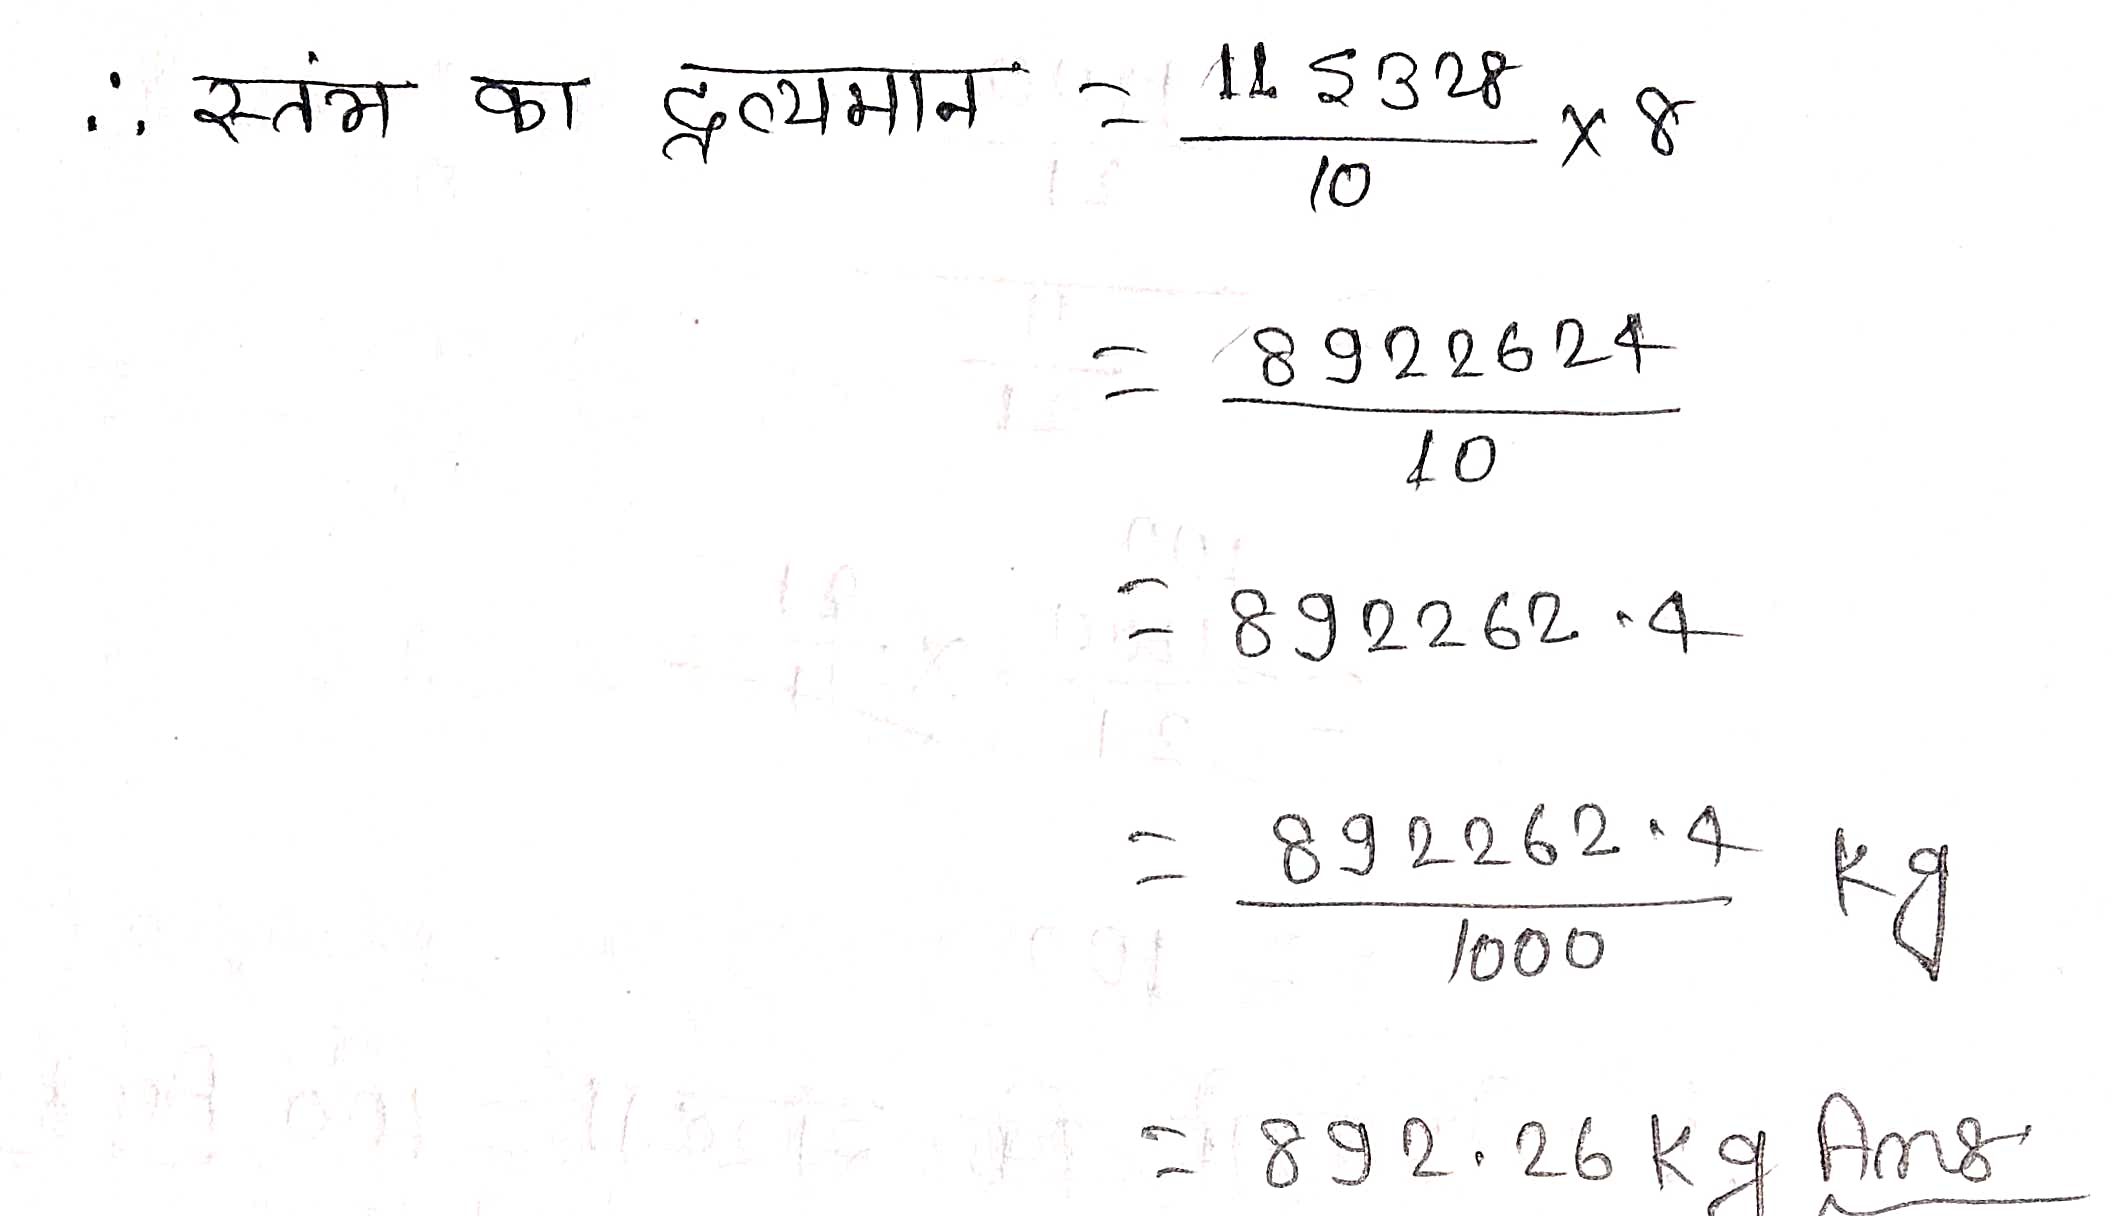 ∴ स्तंभ का द्रव्यमान = 115328/10 × 8
= 8922624/10
= 892262.4
= 892262.4/1000 kg
= 892.26 kg Ans